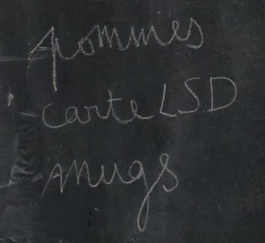 pommes
carte LSD
mugs